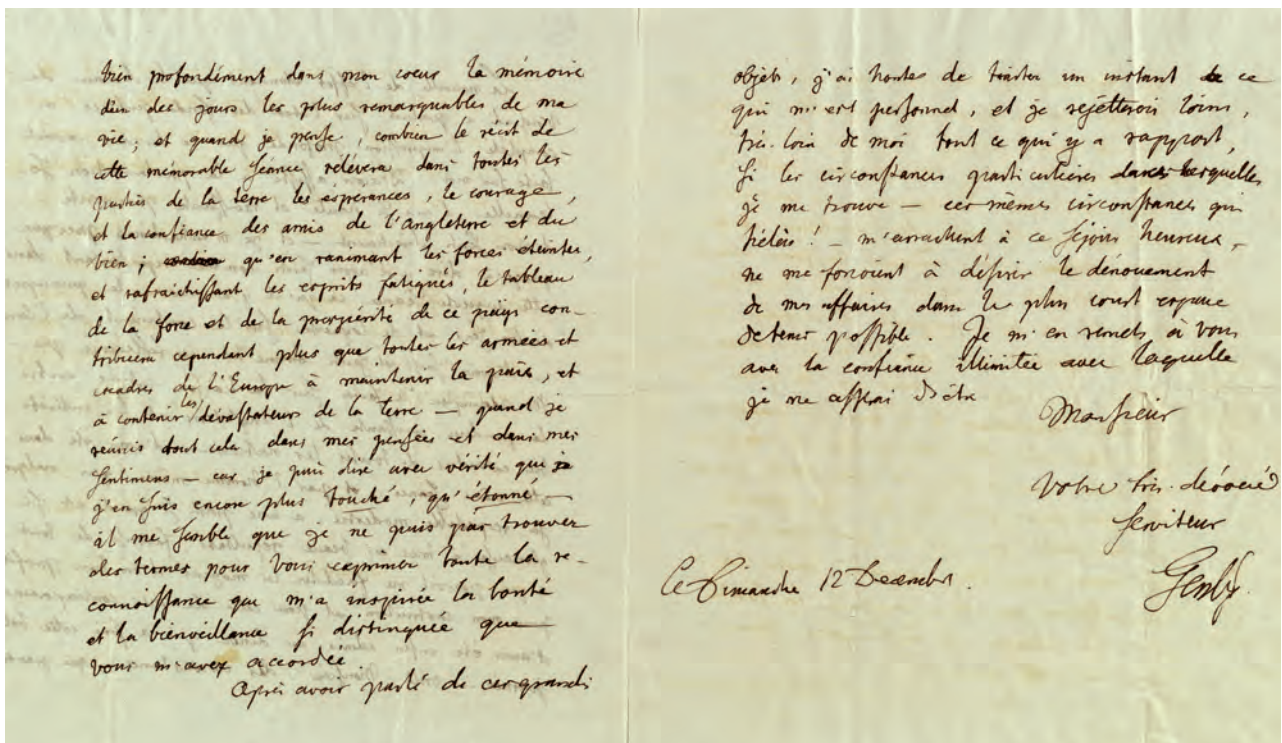 bien profondément dans mon coeur la mémoire
d'un des jours les plus remarquables de ma
vie ; et quand je pense, combien le récit de
cette mémorable séance relevera dans toutes les
parties de la terre les espérances, le courage,
et la confiance des amis de l'Angleterre et du
bien ; qu'en ranimant les forces éteintes,
et rafraichissant les esprits fatigués, le tableau
de la force et de la prospérité de ce païs con-
tribuera cependant plus que toutes les armées et
escadres de l'Europe à maintenir la paix, et
à contenir les dévastateurs de la terre — quand je
réunis tout cela dans mes pensées et dans mes
sentimens — car je puis dire avec vérité que
j'en suis encore plus touché, qu'étonné —
il me semble que je ne puis pas trouver
des termes pour Vous exprimer toute la re-
connoissance que m'a inspirée la bonté
et la bienveillance si distinguée que
vous m'avez accordée.
Après avoir parlé de ces grands
objets, j'ai honte de traiter un instant de ce
qui m'est personnel, et je rejetterois loin,
très-loin de moi tout ce qui y a rapport,
si les circonstances particulières dans lesquelles
je me trouve — ces mêmes circonstances qui
hélas ! — m'arrachent à ce séjour heureux —
ne me forçoient à désirer le dénouement
de mes affaires dans le plus court espace
de tems possible. Je m'en remets à Vous
avec la confiance illimitée avec laquelle
je ne cesserai d'être
Monsieur
Votre très-dévoué
serviteur
Gentz.
Ce Dimanche 12 Decembre.